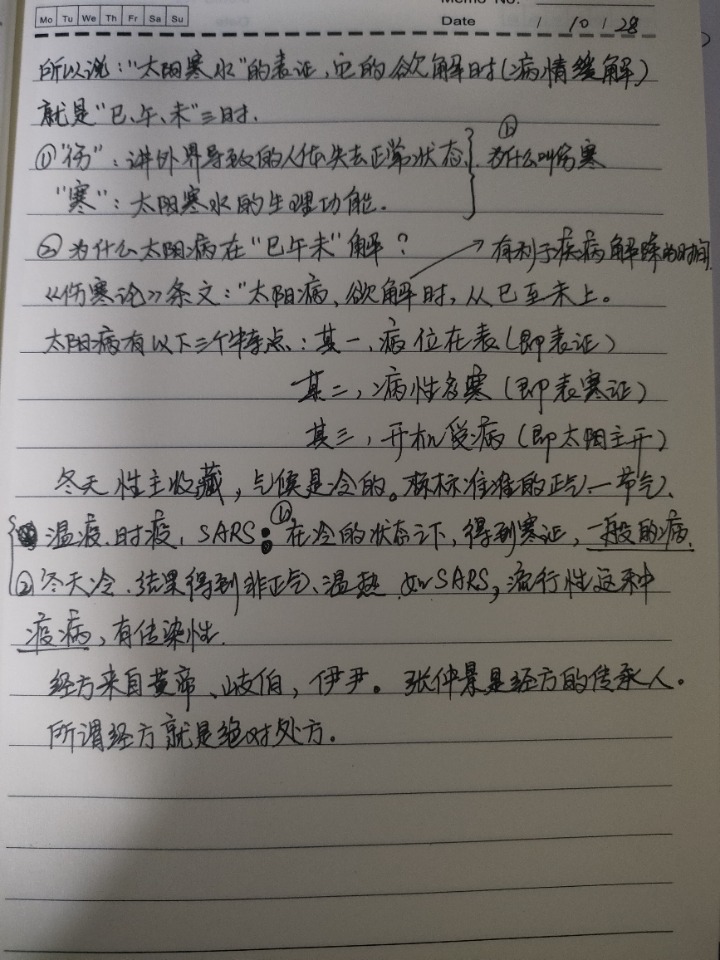 Memo No.
Mo Tu We Th Fr Sa Su
Date / 10 / 28
所以说："太阳寒水"的表证，它的欲解时（病情缓解）
就是"巳、午、未"三时.
①"伤"：讲外界导致的人体失去正常状态. ⓑ为什么叫伤寒
"寒"：太阳寒水的生理功能.
②为什么太阳病在"巳午未"解？ → 有利于疾病解除的时间
《伤寒论》条文："太阳病，欲解时，从巳至未上。
太阳病有以下三个特点：其一、病位在表（即表证）
其二，病性多寒（即表寒证）
其三，开机受病（即太阳主开）
冬天性主收藏，气候是冷的。标准的正气、一节气、
温疫、时疫，SARS：ⓑ在冷的状态下，得到寒证，一般的病.
②冬天冷、结果得到非正气、温热 如SARS，流行性这种
疫病，有传染性.
经方来自黄帝、岐伯，伊尹。张仲景是经方的传承人。
所谓经方就是绝对处方.